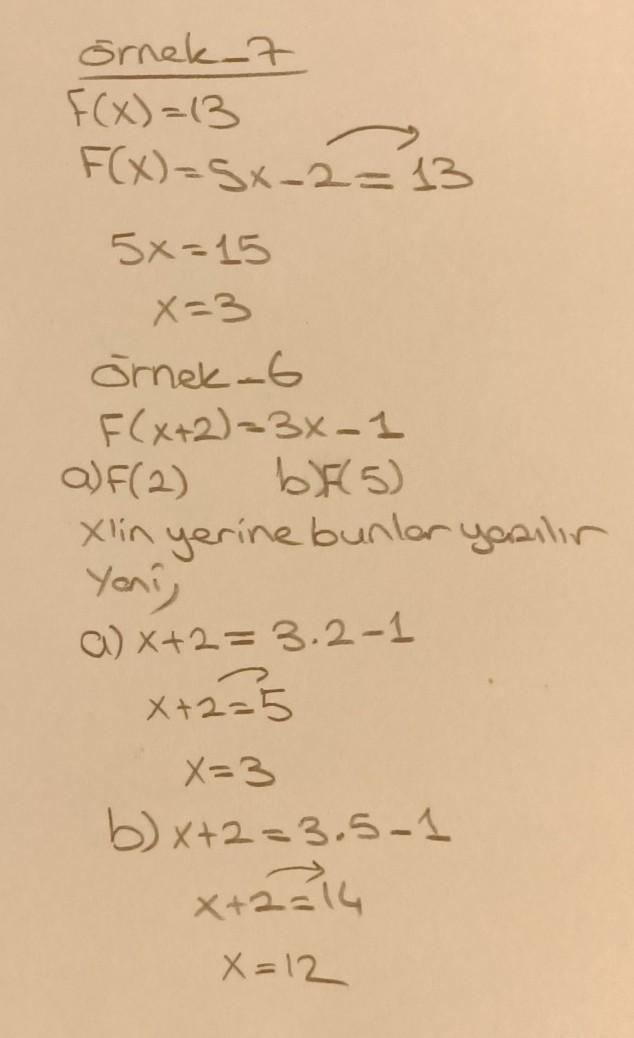 örnek-7
F(x)=13
F(x)=5x-2=13
5x=15
x=3
örnek-6
F(x+2)=3x-1
a)F(2) b)F(5)
X'in yerine bunlar yazılır
Yani,
a) x+2=3.2-1
x+2=5
x=3
b) x+2=3.5-1
x+2=14
x=12